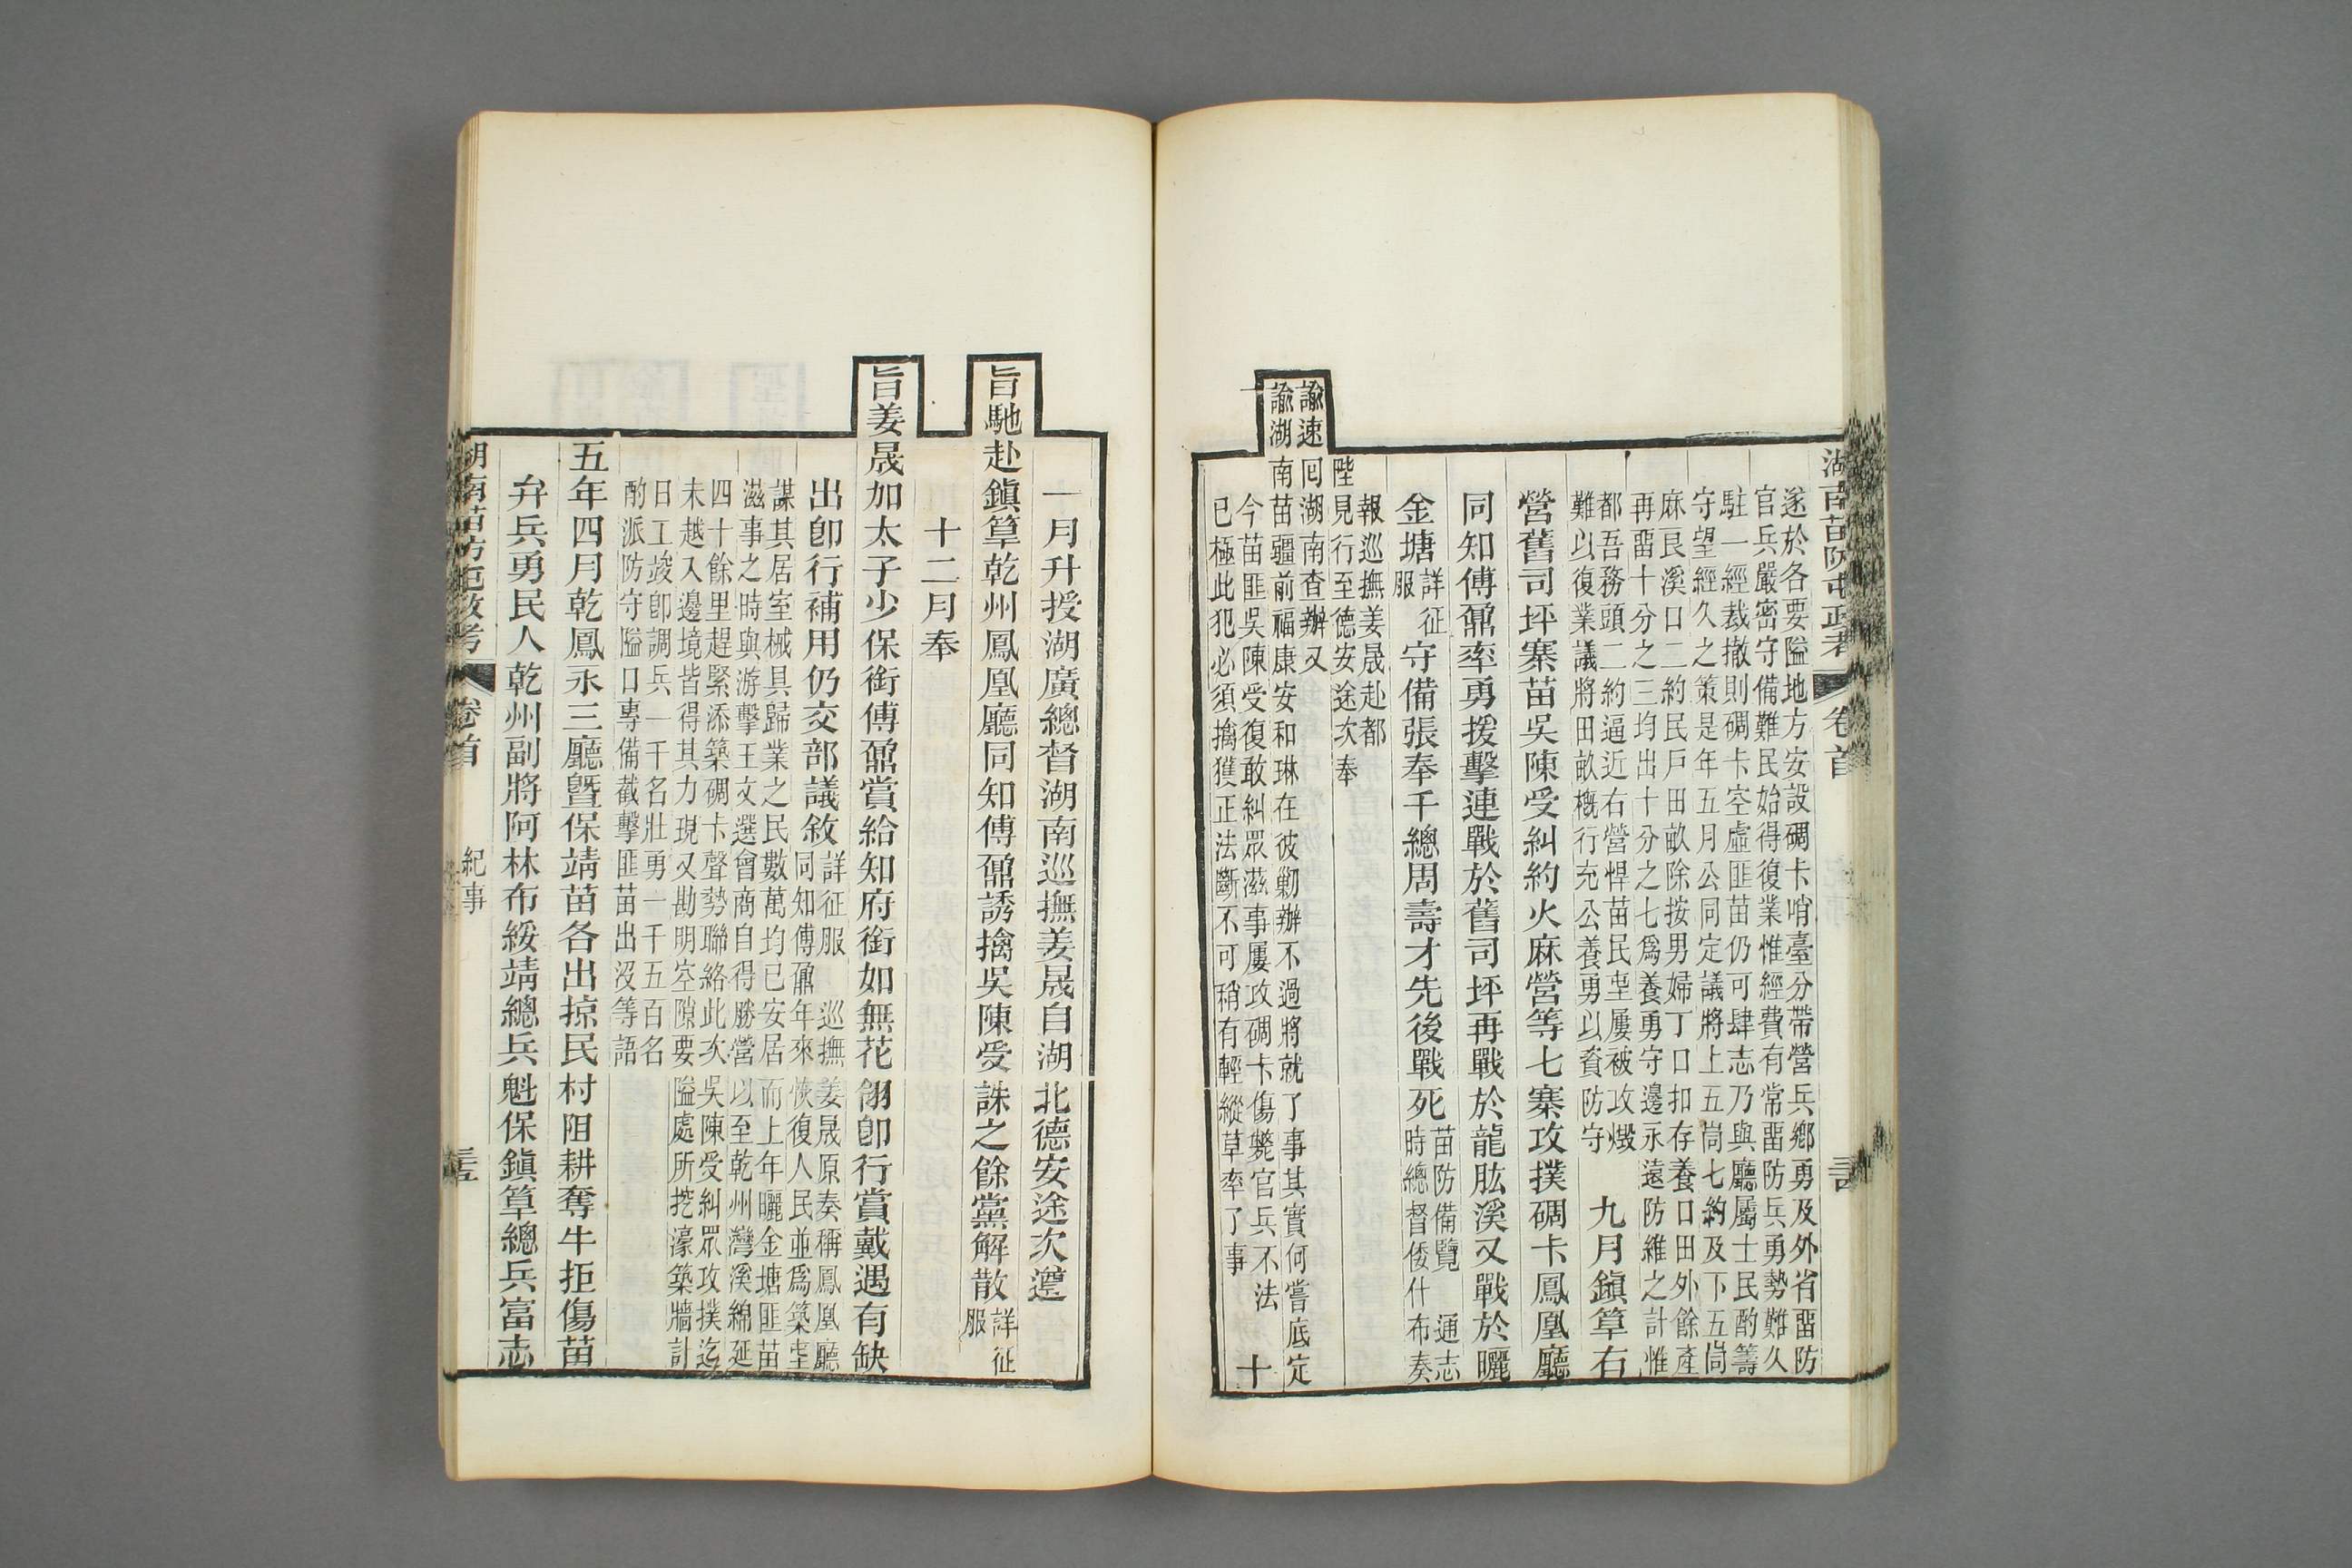 湖南苗防屯政考 卷首
遂於各要隘地方安設碉卡哨臺分帶營兵鄉勇及外省畱防
官兵嚴密守備難民始得復業惟經費有常畱防兵勇勢難久
駐一經裁撤則碉卡空虛匪苗仍可肆志乃與廳屬士民酌籌
守望經久之策是年五月公同定議將上五峝七約及下五峝
麻良溪口二約民戶田畝除按男婦丁口扣存養口田外餘產
再畱十分之三均出十分之七爲養勇守邊永遠防維之計惟
都吾務頭二約逼近右營悍苗民屯屢被攻燬
難以復業議將田畝概行充公養勇以資防守
九月鎭筸右
營舊司坪寨苗吳陳受糾約火麻營等七寨攻撲碉卡鳳凰廳
同知傅鼐率勇援擊連戰於舊司坪再戰於龍肱溪又戰於曬
金塘詳征
服
守備張奉千總周壽才先後戰死苗防備覽 通志
時總督倭什布奏
報巡撫姜晟赴都
陛見行至德安途次奉
諭速囘湖南查辦又
諭湖南苗疆前福康安和琳在彼勦辦不過將就了事其實何嘗底定
今苗匪吳陳受復敢糾眾滋事屢攻碉卡傷斃官兵不法
已極此犯必須擒獲正法斷不可稍有輕縱草率了事
十
一月升授湖廣總督湖南巡撫姜晟自湖北德安途次遵
旨馳赴鎭筸乾州鳳凰廳同知傅鼐誘擒吳陳受誅之餘黨解散詳征
服
十二月奉
旨姜晟加太子少保銜傅鼐賞給知府銜如無花翎卽行賞戴遇有缺
出卽行補用仍交部議敘詳征服 巡撫姜晟原奏稱鳳凰廳
同知傅鼐年來恢復人民並爲築堡
謀其居室械具歸業之民數萬均已安居而上年曬金塘匪苗
滋事之時與游擊王文選會商自得勝營以至乾州灣溪綿延
四十餘里趕緊添築碉卡聲勢聯絡此次吳陳受糾眾攻撲迄
未越入邊境皆得其力現又勘明空隙要隘處所挖濠築牆計
日工竣卽調兵一千名壯勇一千五百名
酌派防守隘口專備截擊匪苗出沒等語
五年四月乾鳳永三廳曁保靖苗各出掠民村阻耕奪牛拒傷苗
弁兵勇民人乾州副將阿林布綏靖總兵魁保鎭筸總兵富志
卷首 紀事 三五